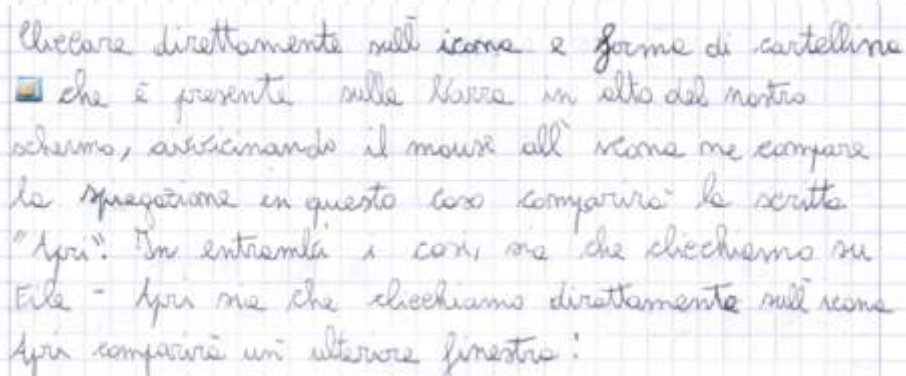 Cliccare direttamente sull'icona a forma di cartellina
che è presente sulla barra in alto del nostro
schermo, avvicinando il mouse all'icona ne compare
la spiegazione in questo caso comparirà la scritta
"Apri". In entrambi i casi, sia che clicchiamo su
File - Apri sia che clicchiamo direttamente sull'icona
Apri comparirà un'ulteriore finestra: